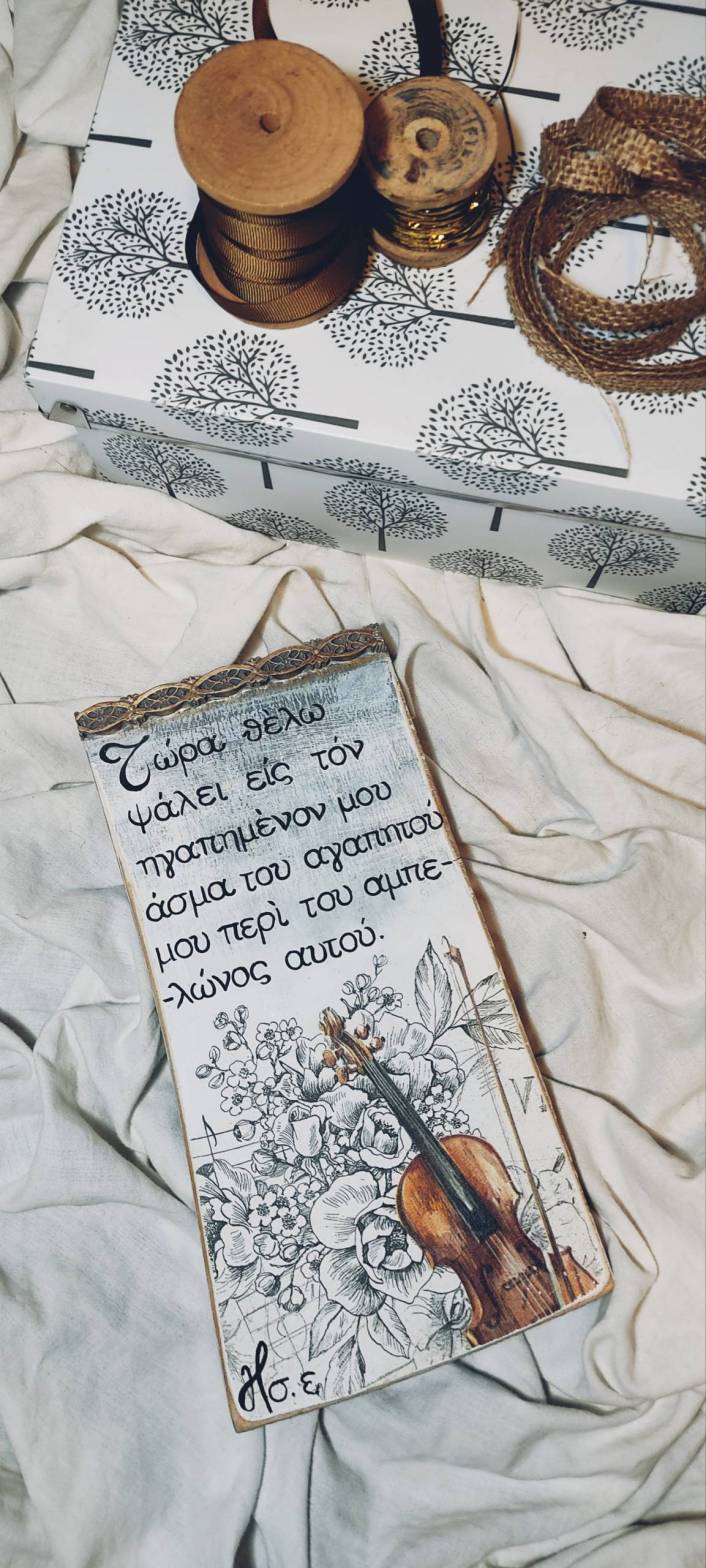 Τώρα θὲλω
ψάλει εἰς τόν
ηγαπημὲνον μου
άσμα του αγαπητού
μου περὶ του αμπε-
-λώνος αυτού.
Ησ. ε